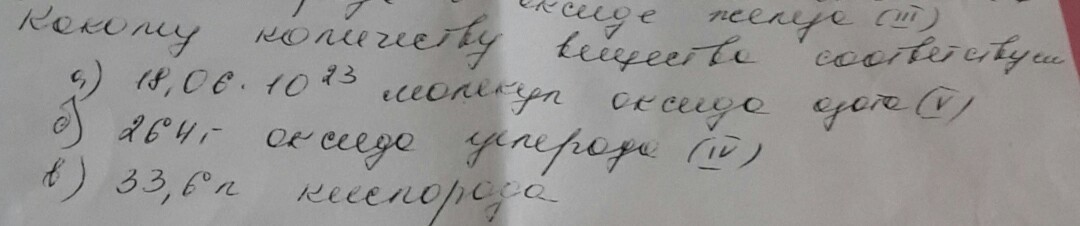 оксиде железа (III)
Какому количеству вещества соответствует
а) 18,06 · 10 23 молекул оксида азота (V)
б) 264 г оксида углерода (IV)
в) 33,6 л кислорода